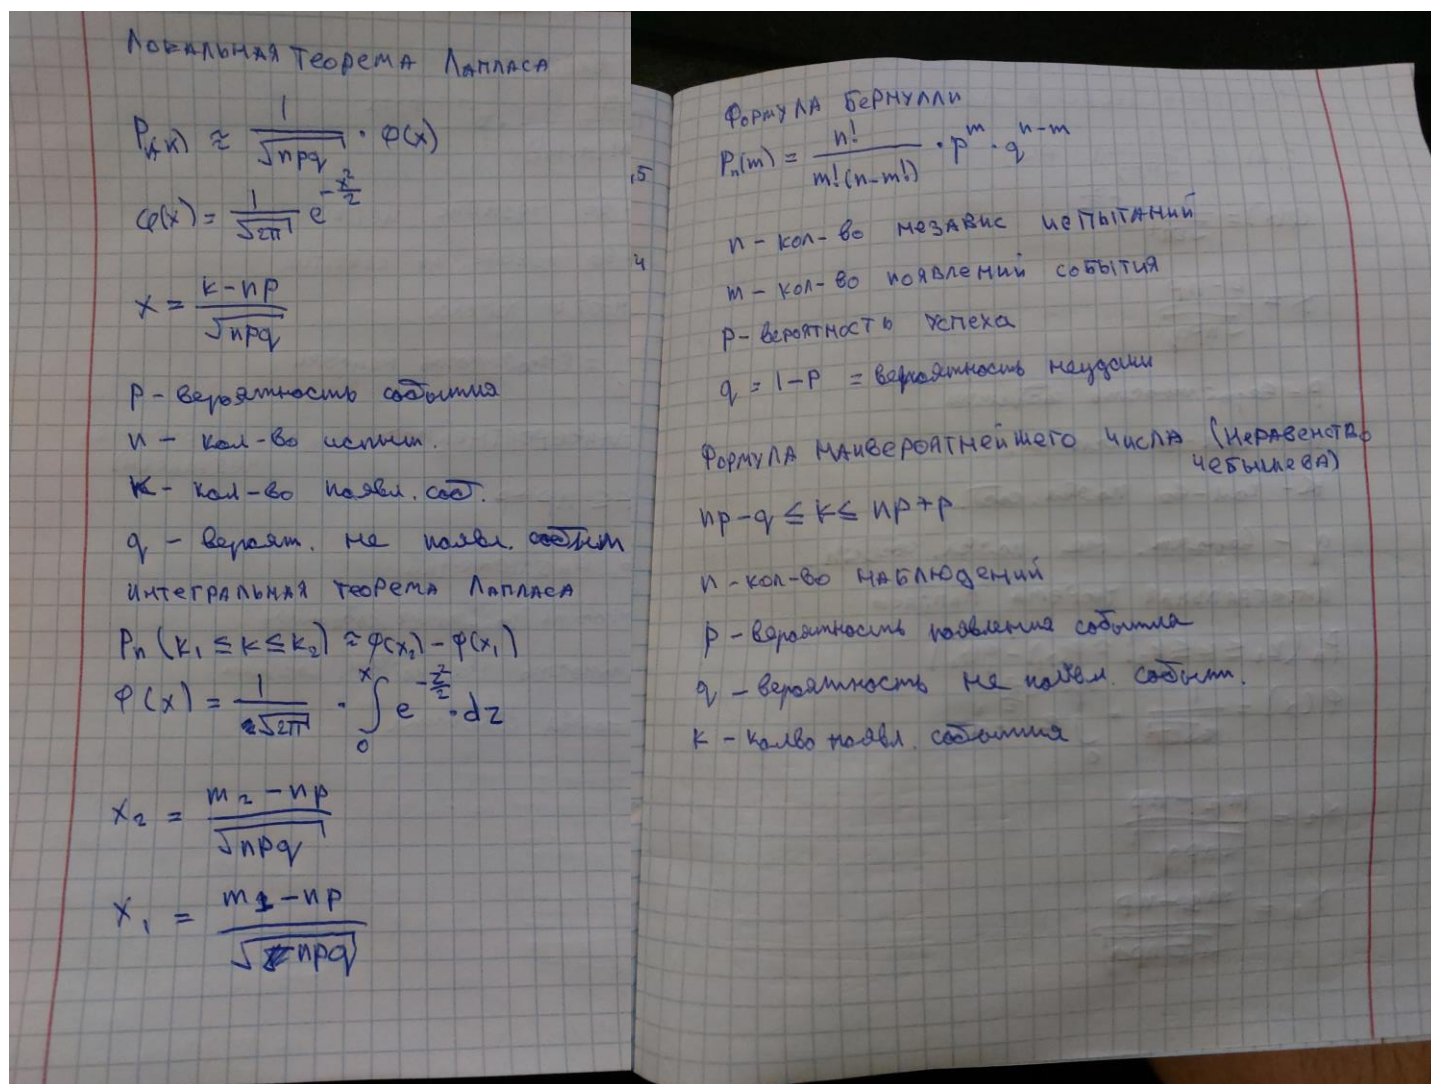 Локальная теорема Лапласа
P(k) ≈ 1/√npq · φ(x)
φ(x) = 1/√2π e^(-x²/2)
x = k-np/√npq
p - вероятность события
n - кол-во испыт.
k - кол-во появл. соб.
q - вероят. не появл. событ
Интегральная теорема Лапласа
Pn (k₁ ≤ k ≤ k₂) ≈ φ(x₂) - φ(x₁)
Φ(x) = 1/√2π · ∫₀ˣ e^(-z²/2) · dz
x₂ = m₂ - np/√npq
x₁ = m1 - np/√npq
,5
4
Формула Бернулли
Pn(m) = n!/m!(n-m!) · p^m · q^(n-m)
n - кол-во независ испытаний
m - кол-во появлений события
p - вероятность успеха
q = 1-p = вероятность неудачи
Формула наивероятнейшего числа (неравенство
Чебышева)
np-q ≤ k ≤ np+p
n - кол-во наблюдений
p - вероятность появления события
q - вероятность не появл. событ.
k - колво появл. события